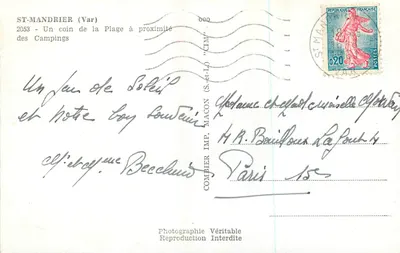 ST-MANDRIER (Var)
2053 - Un coin de la Plage à proximité
des Campings
RÉPUBLIQUE FRANÇAISE
0,20
POSTES
ST MAN
Un jour de Soleil
et notre bon Souvenir
Mr et Mme
COMBIER IMP. MACON (S.-et-L.) "CIM"
Madame et Mademoiselle
4 R.
Paris 15e
Photographie Véritable
Reproduction Interdite